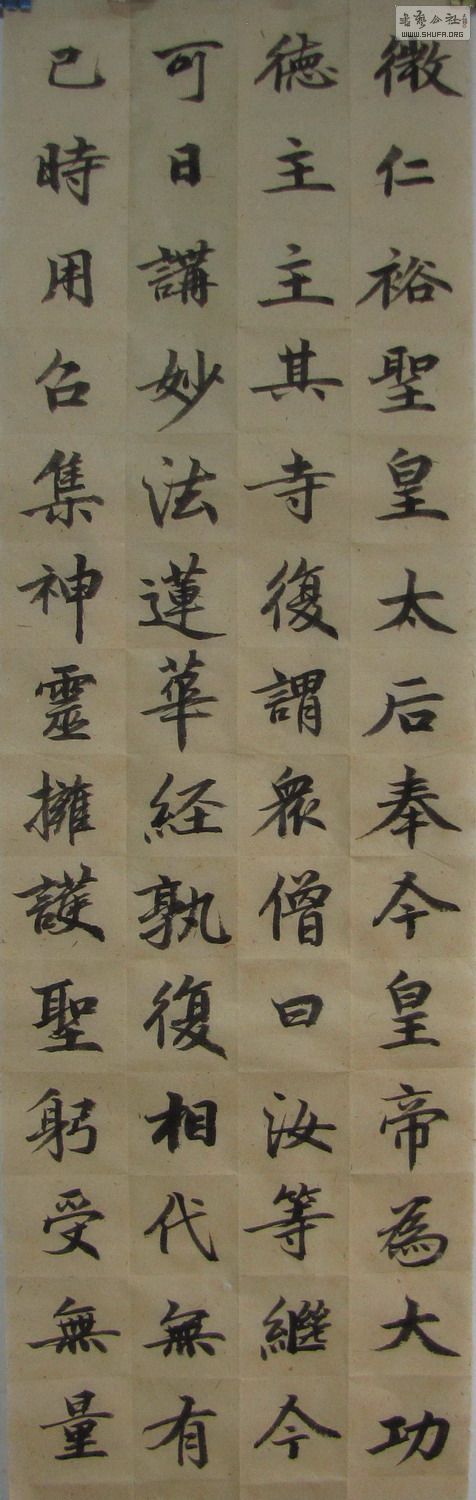 徽仁裕聖皇太后奉今皇帝為大功
德主主其寺復謂眾僧曰汝等繼今
可日講妙法蓮華経孰復相代無有
已時用召集神靈擁護聖躬受無量
書藝公社
WWW.SHUFA.ORG